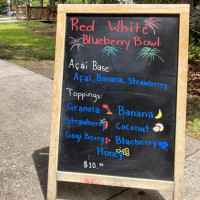 Red White
Blueberry Bowl
Açaí Base:
Açaí, Banana, Strawberry
Toppings:
Granola Banana
Strawberry Coconut
Goji Berry Blueberry
Honey
$10.99